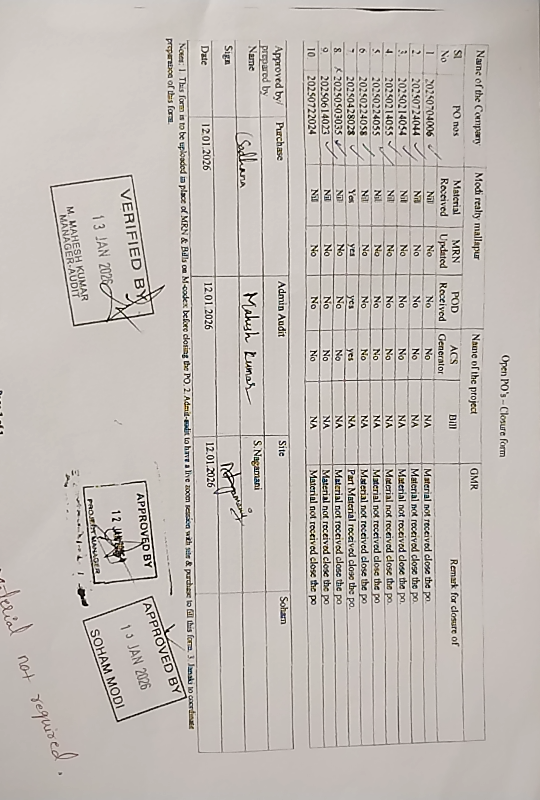 Open PO's – Closure form
Name of the Company Modi realty mallapur Name of the project GMR
Sl No PO nos Material Received MRN Updated POD Received ACS Generator Bill Remark for closure of
1 20250704006 Nil No No No NA Material not received close the po.
2 20250724044 Nil No No No NA Material not received close the po.
3 20250214054 Nil No No No NA Material not received close the po.
4 20250214055 Nil No No No NA Material not received close the po.
5 20250224055 Nil No No No NA Material not received close the po.
6 20250224058 Nil No No No NA Material not received close the po.
7 20250428028 Yes yes yes yes NA Part Material received close the po.
8 20250503035 Nil No No No NA Material not received close the po.
9 20250614023 Nil No No No NA Material not received close the po.
10 20250722024 Nil No No No NA Material not received close the po
Approved by/ prepared by Purchase Admin Audit Site Soham
Name Sadhana Mahesh Kumar S.Nagamani
Sign
Date 12.01.2026 12.01.2026 12.01.2026
Notes: 1. This form is to be uploaded in place of MRN & Bills on M-codex before closing the PO. 2. Admit-audit to have a live zoom session with site & purchase to fill this form. 3. Janaki to coordinate
preparation of this form.
VERIFIED BY
13 JAN 2026
M. MAHESH KUMAR
MANAGER-AUDIT
APPROVED BY
12 JAN
PROJECT MANAGER
APPROVED BY
13 JAN 2026
SOHAM MODI
Material not required.